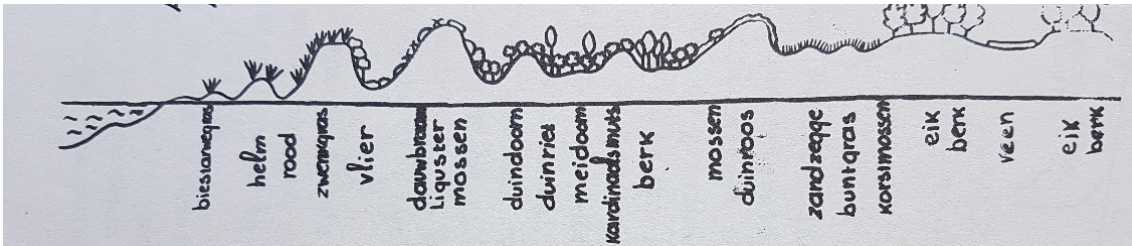 biestarwegras
helm
rood
zwenkgras
vlier
dauwbraam
Liguster
mossen
duindoorn
duinriet
meidoorn
kardinaalsmuts
berk
mossen
duinroos
zandzegge
buntgras
korstmossen
eik
berk
veen
eik
berk